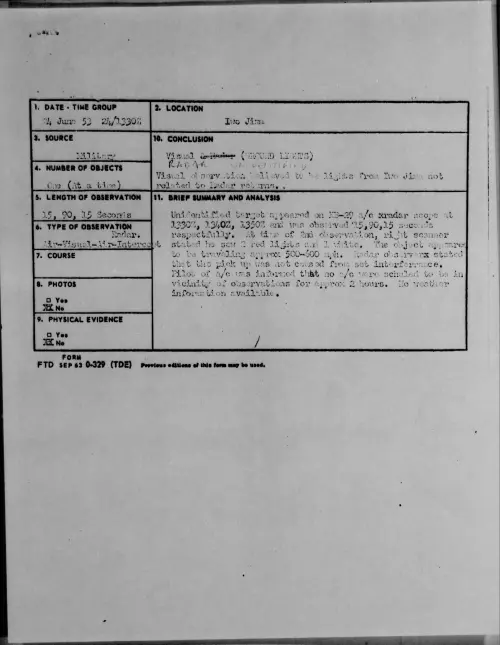 1. DATE - TIME GROUP
24 June 53 24/1330Z
2. LOCATION
Iwo Jima
3. SOURCE
Military
10. CONCLUSION
Visual & Radar (GROUND LIGHTS)
RADAR
Visual observation believed to be lights from Iwo Jima not
related to Radar returns.
4. NUMBER OF OBJECTS
One (At a time)
5. LENGTH OF OBSERVATION
15, 90, 15 Seconds
6. TYPE OF OBSERVATION
Radar.
Air-Visual-Air-Intercept
7. COURSE
8. PHOTOS
□ Yes
XX No
9. PHYSICAL EVIDENCE
□ Yes
XX No
11. BRIEF SUMMARY AND ANALYSIS
Unidentified target appeared on KB-29 a/c xradar scope at
1330Z, 1340Z, 1350Z and was observed 15,90,15 seconds
respectfully. At time of 2nd observation, right scanner
stated he saw 2 red lights and 1 white. The object appeared
to be traveling approx 500-600 mph. Radar observerx stated
that the pick up was not caused from set interference.
Pilot of a/c was informed that no a/c were scheduled to be in
vicinity of observations for approx 2 hours. No weather
information available.
FORM
FTD SEP 63 0-329 (TDE) Previous editions of this form may be used.